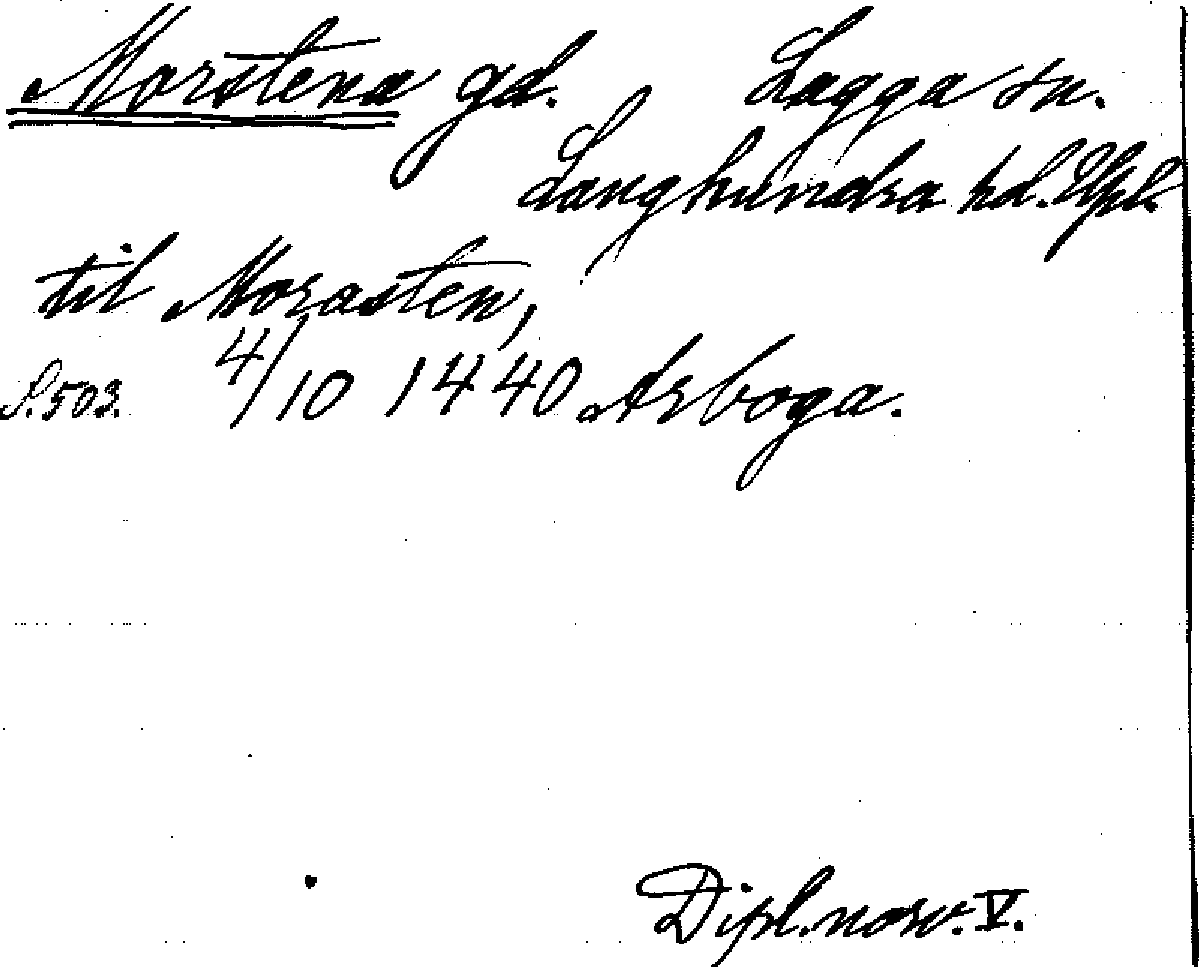 Morstena gd. Lagga sn.
Langhundra hd. Upl.
til Morasten,
S. 503. 4/10 1440 Arboga.
Dipl. norv. V.